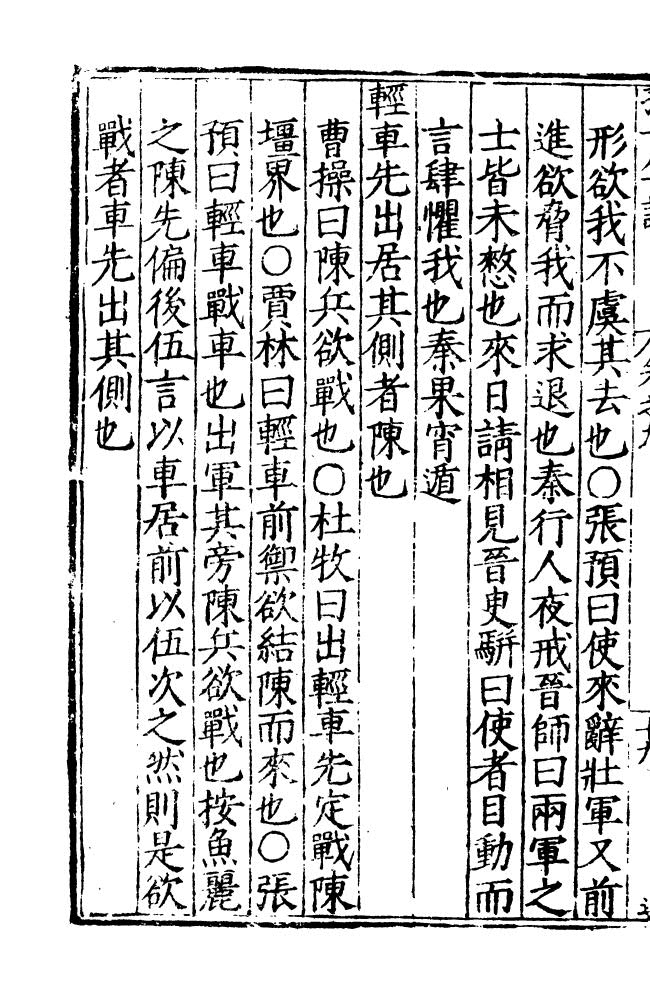 形欲我不虞其去也○張預曰使來辭壯軍又前
進欲脅我而求退也秦行人夜戒晉師曰兩軍之
士皆未憖也來日請相見晉㬰駢曰使者目動而
言肆懼我也秦果宵遁
輕車先出居其側者陳也
曹操曰陳兵欲戰也○杜牧曰出輕車先定戰陳
壃界也○賈林曰輕車前禦欲結陳而來也○張
預曰輕車戰車也出軍其旁陳兵欲戰也按魚麗
之陳先偏後伍言以車居前以伍次之然則是欲
戰者車先出其側也